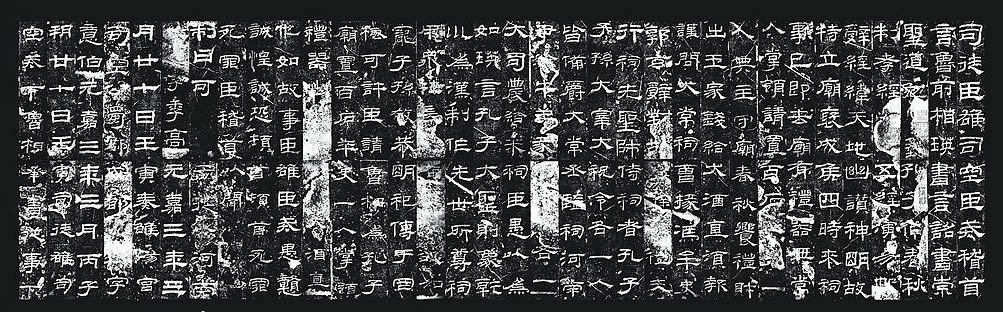 司徒臣雄司空臣戒稽首
言魯前相瑛書言詔書崇
聖道勉藝孔子作春秋
制孝經演易
辭經緯天地幽讚神明故
特立廟褒成侯四時來祠
事已即去廟有禮器無常
人掌領請置百石一
人典主守廟春秋饗禮財
出王家錢給大酒直須報
謹問大常祠曹掾馮牟史
郭玄辭對故事辟雍禮未
行祠先聖師侍祠者孔子
子孫大宰大祝令各一人
皆備爵大常丞監祠河南
尹給牛羊豕各一
大司農給米祠臣愚以為
如瑛言孔子大聖則象乾
坤為漢制作先世所尊祠
用眾牲長備爵欲加
寵子孫敬恭明祀傳于罔
極可許臣請魯相為孔子
廟置百石卒史一人掌領
禮器酒直
他如故事臣雄臣戒愚戇
誠惶誠恐頓首頓首死罪
死罪臣稽首以聞
制曰可河南
字季高元嘉三年三
月廿七日壬寅奏雒陽宮
司空公蜀郡都戒字
意伯元嘉三年三月丙子
朔廿七日壬寅司徒雄司
空戒下魯相承書從事下